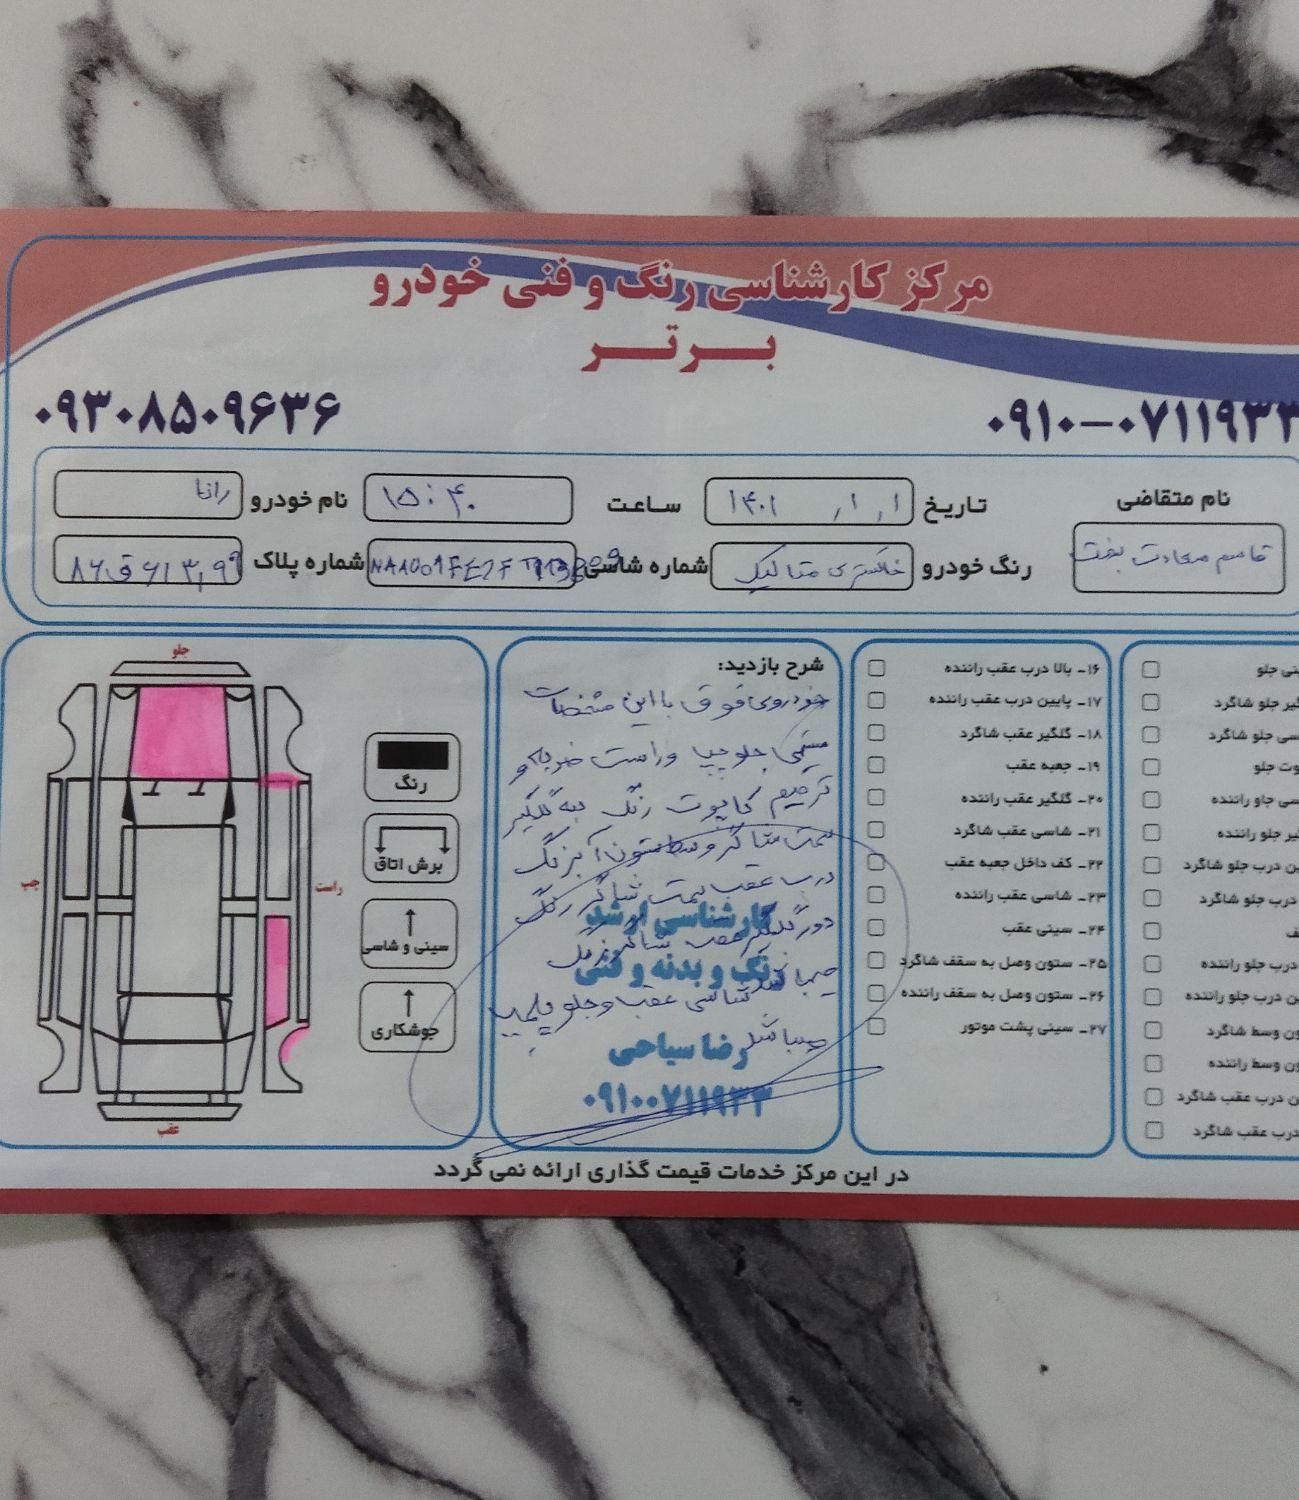 مرکز کارشناسی رنگ و فنی خودرو
بـــرتـــر
۰۹۱۰-۰۷۱۱۹۳۳
۰۹۳۰۸۵۰۹۶۳۶
نام متقاضی
قاسم سعادت بخت
تاریخ
۱۴۰۱ / ۱ / ۱
ساعت
۱۵:۴۰
نام خودرو
رانا
رنگ خودرو
خاکستری متالیک
شماره شاسی
شماره پلاک
۸۶ ق ۶۱۳ ر ۹۹
نی جلو
گیر جلو شاگرد
سی جلو شاگرد
وت جلو
سی جلو راننده
گیر جلو راننده
ین درب جلو شاگرد
درب جلو شاگرد
ف
درب جلو راننده
ین درب جلو راننده
ون وسط شاگرد
ون وسط راننده
ن درب عقب شاگرد
درب عقب شاگرد
۱۶- بالا درب عقب راننده
۱۷- پایین درب عقب راننده
۱۸- گلگیر عقب شاگرد
۱۹- جعبه عقب
۲۰- گلگیر عقب راننده
۲۱- شاسی عقب شاگرد
۲۲- کف داخل جعبه عقب
۲۳- شاسی عقب راننده
۲۴- سینی عقب
۲۵- ستون وصل به سقف شاگرد
۲۶- ستون وصل به سقف راننده
۲۷- سینی پشت موتور
شرح بازدید:
خودروی فوق با این مشخصات
جلو چپ و راست ضربه و
ترمیم کاپوت رنگ لبه گلگیر
سمت شاگرد وسط ستون آبرنگ
درب عقب سمت شاگر رنگ
دور گلگیر عقب شاگرد رنگ
میباشد شاسی عقب و جلو پلمپ
میباشد
کارشناسی ارشد
رنگ و بدنه و فنی
رضا سیاحی
۰۹۱۰۰۷۱۱۹۳۳
رنگ
برش اتاق
سینی و شاسی
جوشکاری
جلو
راست
چپ
عقب
در این مرکز خدمات قیمت گذاری ارائه نمی گردد